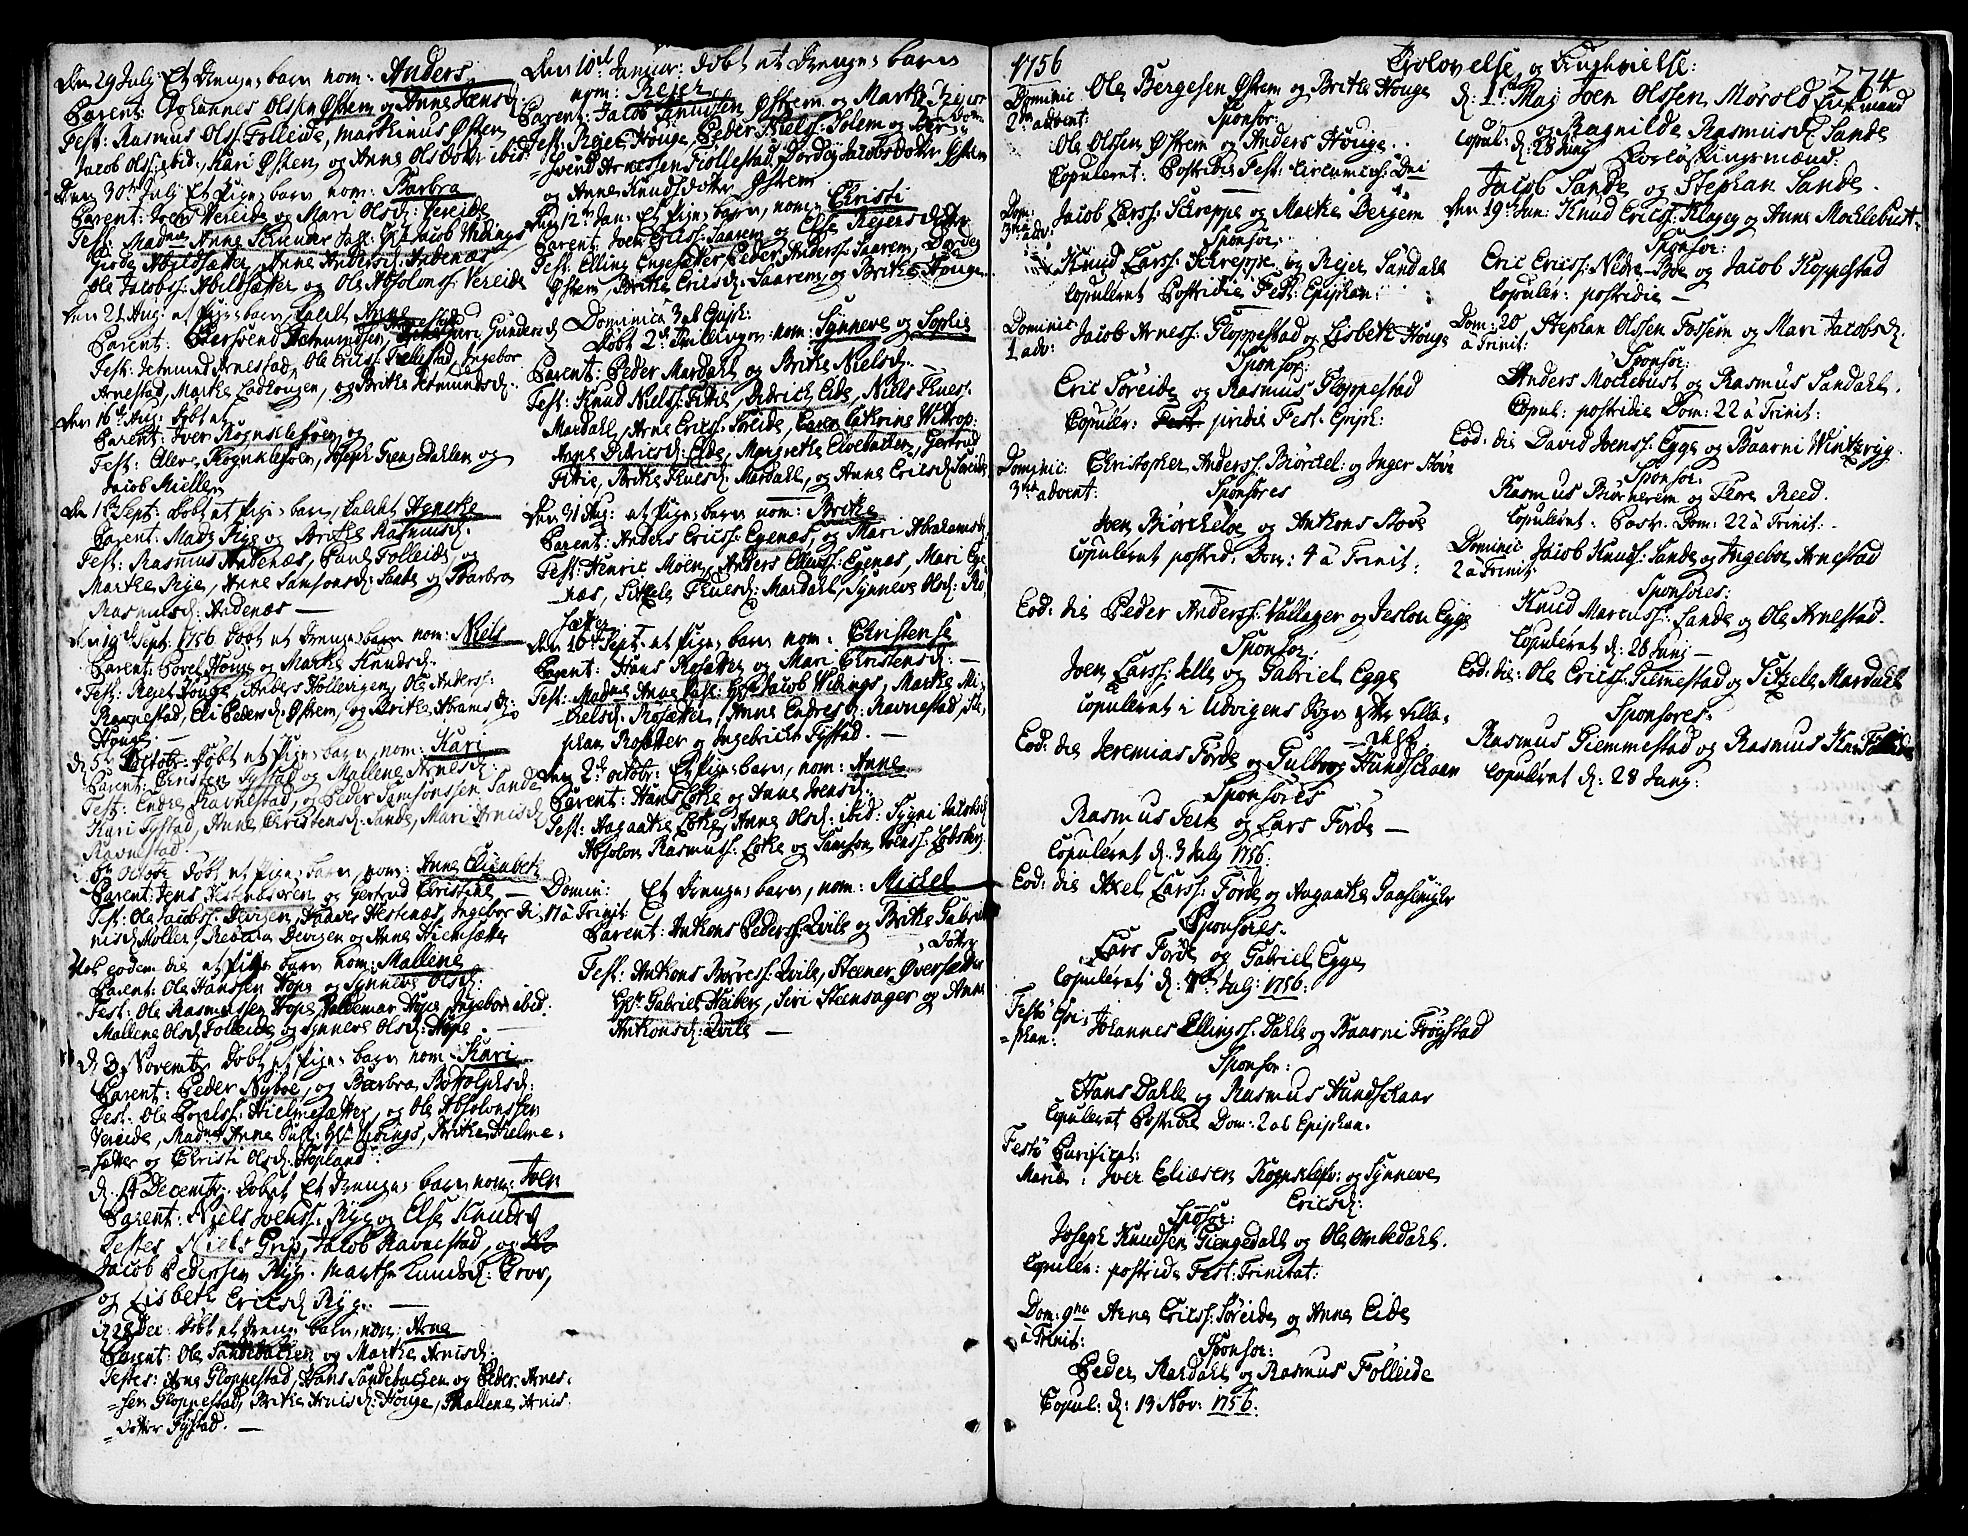 Den 29 July: Et Drenge barn nom: Anders
Parent: Johannes Olssen Østem og Anne Jensd:
Test: Rasmus Ols: Folleide, Markinus Østem
Jacob Ols: ibid:, Kari Østem, og Anne Olsdotter ibid:
Den 30te Juli Et Pige barn nom: Barbra
Parent: Joen Vereide og Mari Olsd: Vereide
Test: Madme Anne Sal: Hr: Jacob Widings
Abildsætter, Anne Andersd: Andenæs
Ole Jacobs: Abildsætter og Ole Absolons: Vereide
Den 21 Aug: et Pige barn, kaldet Anne
Parent: Gundersd
Test: Jetmund Arnestad, Ole Erics: Ingebor
Arnestad, Marte og Brite Jetmundsd:
Den 16de Aug: døbt et
Parent: Iver Rognkleføen, og
Test: Elleve Rognkleføen, Joseph Giengedahlen og
Jacob Miellem
Den 1 Sept: døbt et Pige barn, kaldet Agnethe
Parent: Mads Rye og Brithe Rasmusd:
Test: Rasmus Andenæs, Paul Folleide, og
Marthe Rye, Anne Samsonsd: Sande og Barbra
Rasmusd: Andenæs —
Den 19de Sept: 1756 døbt et Drenge barn nom: Niels
Parent: Povel Houge og Marthe Knudsd:
Test: Rejer Houge, Anders Hollevigen, Ole Anders:
Ravnestad, Eli Pedersd: Østrem, og Brithe Abramsd:
Houge —
d: 5te Octobr: døbt et Pige barn, nom: Kari
Parent: Christen Tystad og Mallene Arnesd:
Test: Endre Ravnestad, og Peder Samsonssen Sande
Kari Tystad, Anne Christensd: Sande, Mari Arnisd
Ravnestad
Octobr døbt et Pige barn, nom: Anne Elisabeth
Parent: Jens Hestenesøren og Gertrud Christine —
Test: Ole Jacobs: Devigen, Haaver Hestenæs, Ingebor Di-
nisd: Møller, Rebecca Devigen og Anne Hiemsætter
eodem die et Pige barn nom: Mallene
Parent: Ole Hanssen Hope og Synneve Olsd:
Test: Ole Rasmussen Hope, Valdemar Hope, Ingebor ibid:
Mallene Olsd: Folleide, og Synneve Olsd: Hope —
d: 3 Novembr. døbt et Pige barn nom: Kari
Parent: Peder Nyboe, og Barbra Botolphsd:
Test: Ole Povels: Hielmesætter, og Ole Absolonssen
Vereide, Madme Anne Sal: Hr: Widings, Brithe Hielme-
sætter og Christi Olsd: Hopland
d: Decembr. døbet Et Drenge barn nom: Joen
Parent: Niels Joenss: Ryg og Else Knudsd
Testes Niels Grip, Jacob Ravnestad, og
Jacob Pederssen Ryg. Marthe Knudsd: Prov,
og Lisbeth Ericsd Ryg. —
d 28 Dec: døbt et Drenge barn, nom: Arne
Parent: Ole Sandebachen og Marthe Arnisd:
Testes: Arne Gloppestad, Hans Sandebachen og Peder Arnes-
sen Gloppestad, Brithe Arnisd: Houge, Mallene Arnis-
dotter Tystad. —
Den 10de Januar: døbt et Drenge barn
nom: Rejer
Parent: Jacob Knudsen Østrem og Marthe Rejers
Test: Rejer Houge, Peder Niels: Solem og
Svend Arnessen Fiollestad, Dordey Jacobsdotter Østem
og Anne Knudsdotter Østrem
Den 12te Jan: Et Pige barn, nom: Christi
Parent: Joen Erics: Saarem og Else Rejersd:
Test: Elling Engesætter, Peder Anders: Saarem, Dordey
Østrem, Brithe Ericsd: Saarem, og Brithe Houge
Dominica 3 ab Epiph:
Døbt 2de Tvillinger nom: Synneve og Sophie
Parent: Peder Mardahl og Brithe Nielsd: —
Test: Knud Niels: Fitie, Didrich Eide, Niels Tues:
Mardahl, Arne Erics: Søreide, Caren Cathrine Wittrop:
Anne Didricsd: Eide, Margrethe Eidebachen, Gertrud
Fitie, Brithe Tuesd: Mardahl, og Anne Ericsd Søreide
Den 31 Aug: et Pige barn nom: Brithe
Parent: Anders Erics: Egenæs, og Mari Abrahamsd:
Test: Henric Moen, Anders Ellings: Egenæs, Mari Ege
næs, Sitzele Tuesd: Mardahl, Synneve Olsd: Ro
sætter
Den 10de Sept: et Pige barn nom: Christense
Parent: Hans Rosætter og Mari Christensd: —
Test: Madme Anne Sal: Hr: Jacob Widings, Marthe Mi-
chelsd: Rosætter, Anne Endresd: Ravnestad, Ste-
phan Rosætter og Ingebricht Tystad. —
Den 2de Octobr: Et Pige barn, nom: Anne
Parent: Hans Lothe og Anne Joensd:
Test: Aagaathe Lothe, Anne Olsd: ibid: Sygni Jacobsd
Absolon Rasmuss: Lothe og Samson Joenss:
Domin: Et Drenge barn, nom: Michel
17 à Trinit:
Parent: Anthons Peders: Qvile og Brithe Gabriels
dotter
Test: Anthons Børres: Qvile, Steener Øversætter
Hr: Gabriel Heiberg, Siri Steensager og Anne
Anthonsd: Qvile —
1756 Trolovelse og Ægtevielse: 274
Dominic: 2da advent: Ole Bergesen Østrem og Brithe Houge
Sponsor:
Ole Olssen Østrem og Anders Houge.
Copuleret: Postridie Fest: Circumcis: Dni
Dom: 3tia adv: Jacob Larss: Skreppe og Marthe Bergem
Sponsor:
Knud Larss: Skreppe, og Rejer Sandahl
Copuleret Postridie Fest: Epiphan:
Dominic: 1 adv: Jacob Arness: Gloppestad og Lisbeth Houge
Sponsor:
Eric Søreide og Rasmus Gloppestad
Copuler: Fest. pridie Fest. Epiph:
Dominic: 3tia advent: Christopher Anders: Biørchel: og Inger Støve
Sponsores
Joen Biørcheloe og Anthons Støve
Copuleret postrid. Dom: 4 à Trinit:
Eod: die Peder Anders: Vallager og Jeslou Egge
Sponsor:
Joen Larss: Telle og Gabriel Egge
Copuleret i Udvigens Sogn efter tilla-
delse
Eod: die Jeremias Førde og Gulborg Hundschaar
Sponsores
Rasmus Terre og Lars Førde —
Copuleret d: 3 July 1756:
Eod: die Axel Larss: Førde og Aagaathe Gaasemyr
Sponsores.
Lars Førde og Gabriel Egge
Copuleret d: July: 1756:
Festo Epi-
phan: Johannes Ellings: Dahle og Baarni Frøystad
Sponsor:
Hans Dahle og Rasmus Hundschaar
Copuleret Postridie Dom: 2 ab Epiphan.
Festo Purificat:
Mariæ: Iver Eliæsen Rognklef: og Synneve
Ericsd:
Sponsor:
Joseph Knudsen Giengedahl og Ole Ombedahl.
Copuler: postridie Fest: Trinitat:
Dom: 9na Arne Erics: Søreide og Anne Eide
à Trinit:
Sponsor:
Peder Mardahl og Rasmus Folleide
Copul: d: 13 Nov: 1756:
d: 1ste Maj Joen Olssen Mørold Enkemand
og Ragnilde Rasmusd: Sande
Copul: d: 28 Junij
Forløftningsmænd:
Jacob Sande og Stephan Sande.
Den 19de Jun: Knud Erics: Kløgey og Anne Mochlebust
Sponsor:
Eric Erics: Nedre-Boe og Jacob Koppestad
Copuler: postridie —
Dom: 20 à Trinit: Stephan Olssen Fossem og Mari Jacobsd:
Sponsor:
Anders Mochlebust og Rasmus Sandahl.
Copul: postridie Dom: 22 à Trinit:
Eod: die David Joenss: Egge og Baarni Wintervig
Sponsor:
Rasmus Biørnerem og Tore Reed.
Copuleret: Postr. Dom: 22 à Trinit:
Dominic: 2 à Trinit: Jacob Knuds: Sande og Ingebor Arnestad
Sponsores:
Knud Marcuss: Sande og Ole Arnestad.
Copuleret d: 28 Junij —
Eod: die: Ole Erics: Giemestad og Sitzele Mardahl
Sponsores:
Rasmus Giemmestad og Rasmus
Copuleret d: 28 Junij: